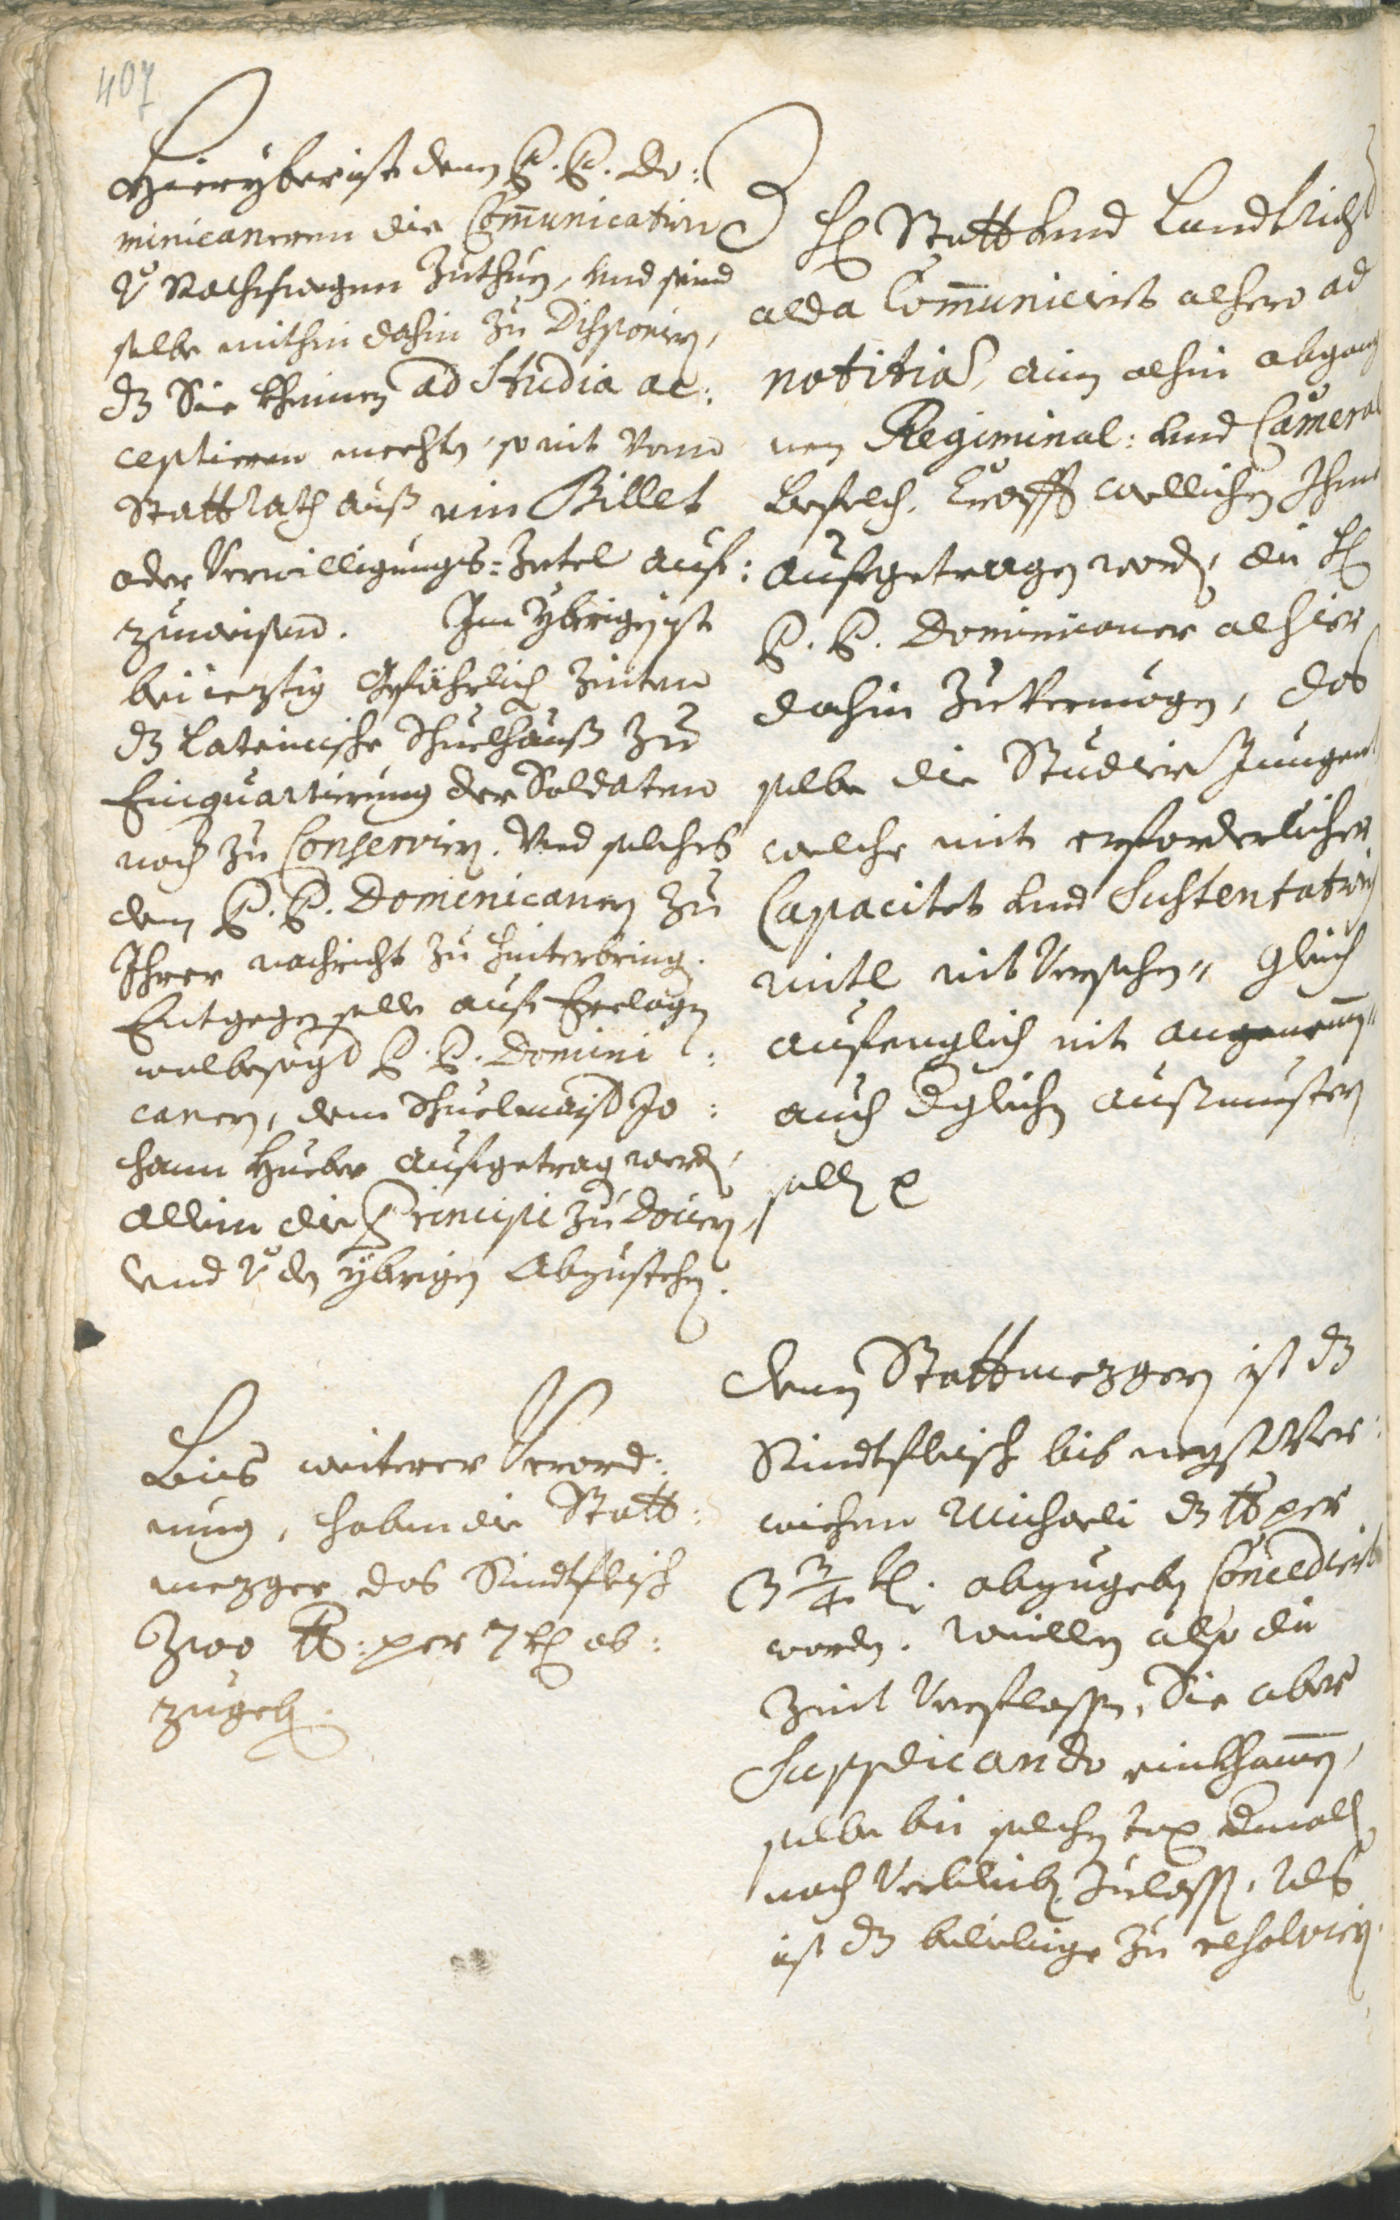 407
Hieryber ist denen P. P. Do:
minicanern die Communication
v Rathswegen zuthuen, und seind
selbe mithin dahin zu Disponiern,
dz Sie kheinen ad Studia ac:
ceptieren mechten, so nit vom
Stattrath auß ein Billet
oder Verwilligungs=Zetel auf:
zuweisend. Im ybrigen ist
bei ieztig gefährlich Zeiten
dz Lateinische Schuelhauß zu
Einquartierung der Soldaten
noch zu Conserviern. Und solches
den P. P. Domenicanern zu
Ihrer nachricht zu hinterbring.
Entgegen solle auf Erclagen
wolbesagt P. P. Domini:
canern, dem Schuelmaister Jo:
hann Hueber aufgetrag werden,
allein die Principi zu Dociern,
und v den ybrigen abzustehen.
Hr Statt und Landtricht
alda Communiciert alhero ad
notitiam, ainen alhin abgang
nen Regiminal: und Cameral
Befelch, Crafft wellichen Ihme
aufgetragen worden, die Hr
P. P. Dominicaner alhier
dahin zuvermögen, das
selbe die Studier Jungen
welche mit erforderlicher
Capacitet und Sustentation
mitl nit versehen" gleich
anfenglich nit angenomen"
auch dergleichen außmustern
sollen
Bis weiterer Verord:
nung, haben die Statt:
mezger das Rindtfleisch
Zwo lb: per 7 kr ab:
zugeben.
Denen Stattmezgern ist dz
Rindtfleisch bis negst Ver:
wichen Michaeli dz lb per
3 3/4 kr. abzugeben Concediert
worden. Weillen also die
Zeit verflossen, Sie aber
Supplicando einkhomen,
selbe bei solchen tax dermalen
noch Verbleiben zulassen, Als
ist dz beliebige zu resolviern.